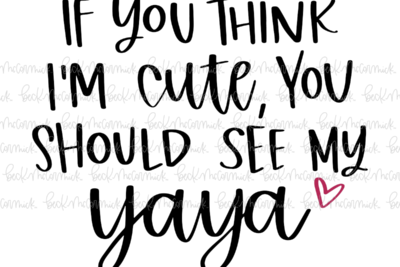 IF YOU THINK
I'M cute, YOU
SHOULD SEE MY
yaya